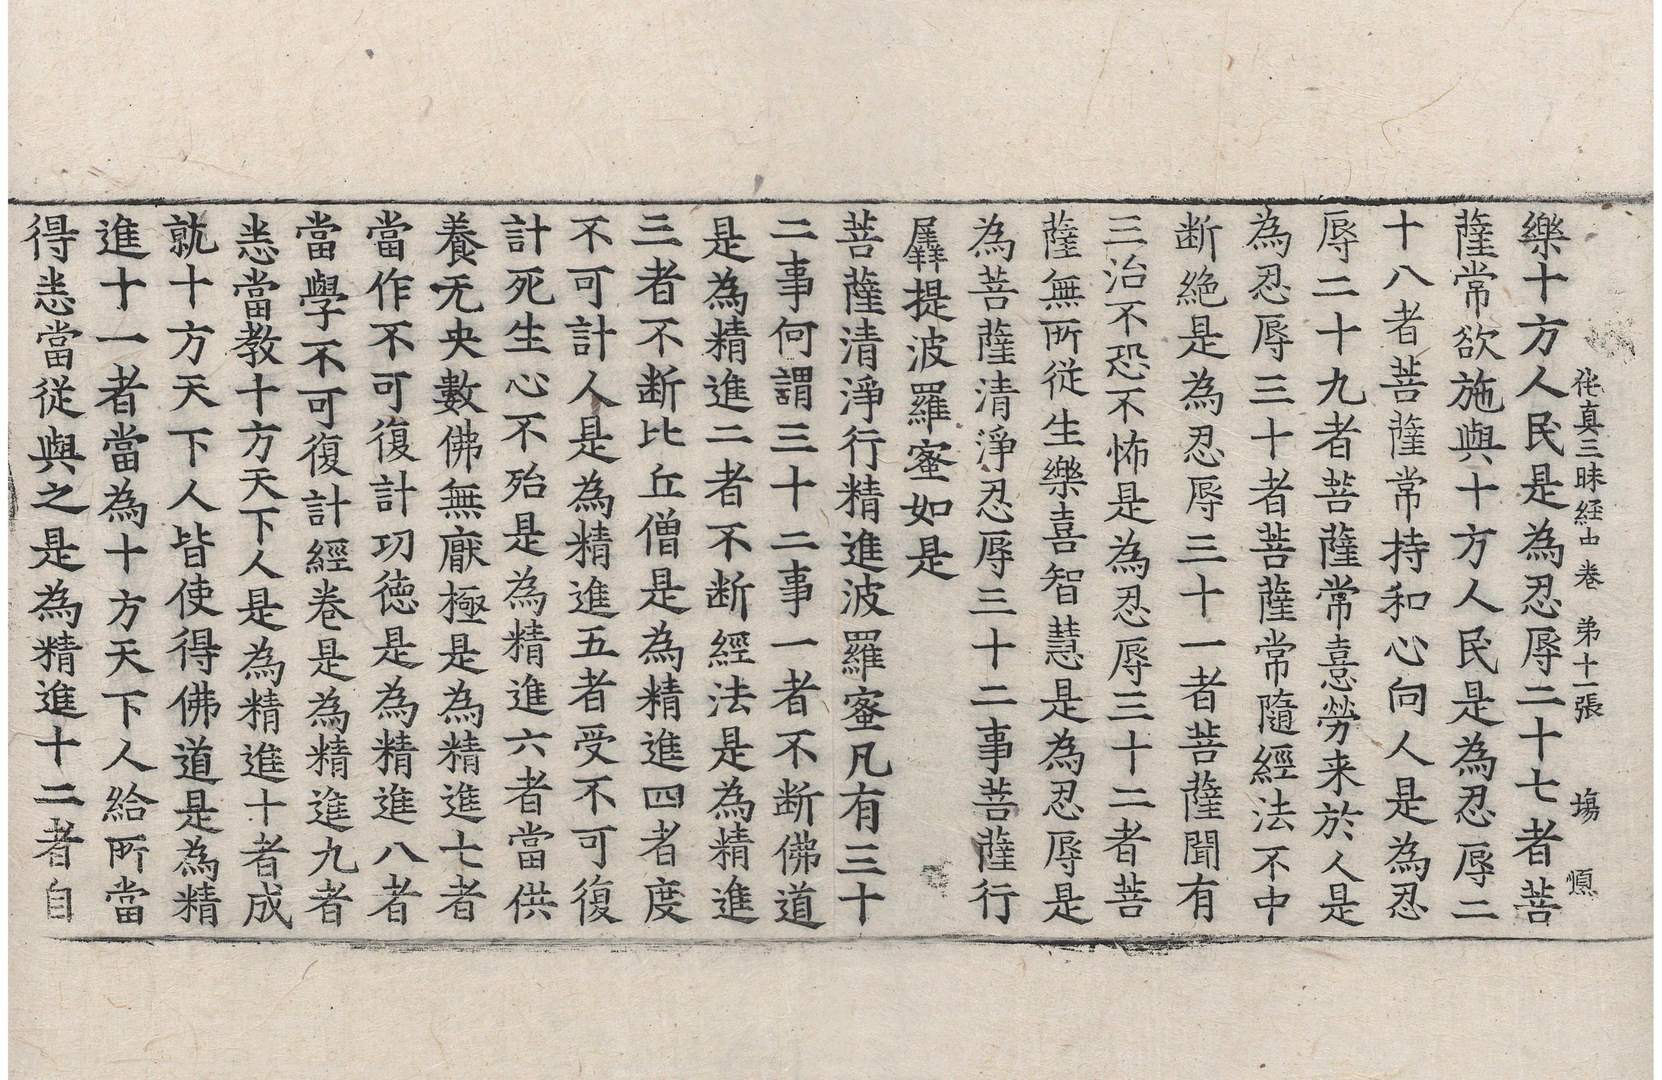 㐌真三昧経中卷 弟十一張 場 愩
樂十方人民是為忍辱二十七者菩
薩常欲施與十方人民是為忍辱二
十八者菩薩常持和心向人是為忍
辱二十九者菩薩常憙勞来於人是
為忍辱三十者菩薩常隨經法不中
断絶是為忍辱三十一者菩薩聞有
三治不恐不怖是為忍辱三十二者菩
薩無所從生樂喜智慧是為忍辱是
為菩薩清淨忍辱三十二事菩薩行
羼提波羅蜜如是
菩薩清淨行精進波羅蜜凡有三十
二事何謂三十二事一者不断佛道
是為精進二者不断經法是為精進
三者不断比丘僧是為精進四者度
不可計人是為精進五者受不可復
計死生心不殆是為精進六者當供
養无央數佛無厭極是為精進七者
當作不可復計功徳是為精進八者
當學不可復計經卷是為精進九者
恚當教十方天下人是為精進十者成
就十方天下人皆使得佛道是為精
進十一者當為十方天下人給所當
得恚當從與之是為精進十二者自